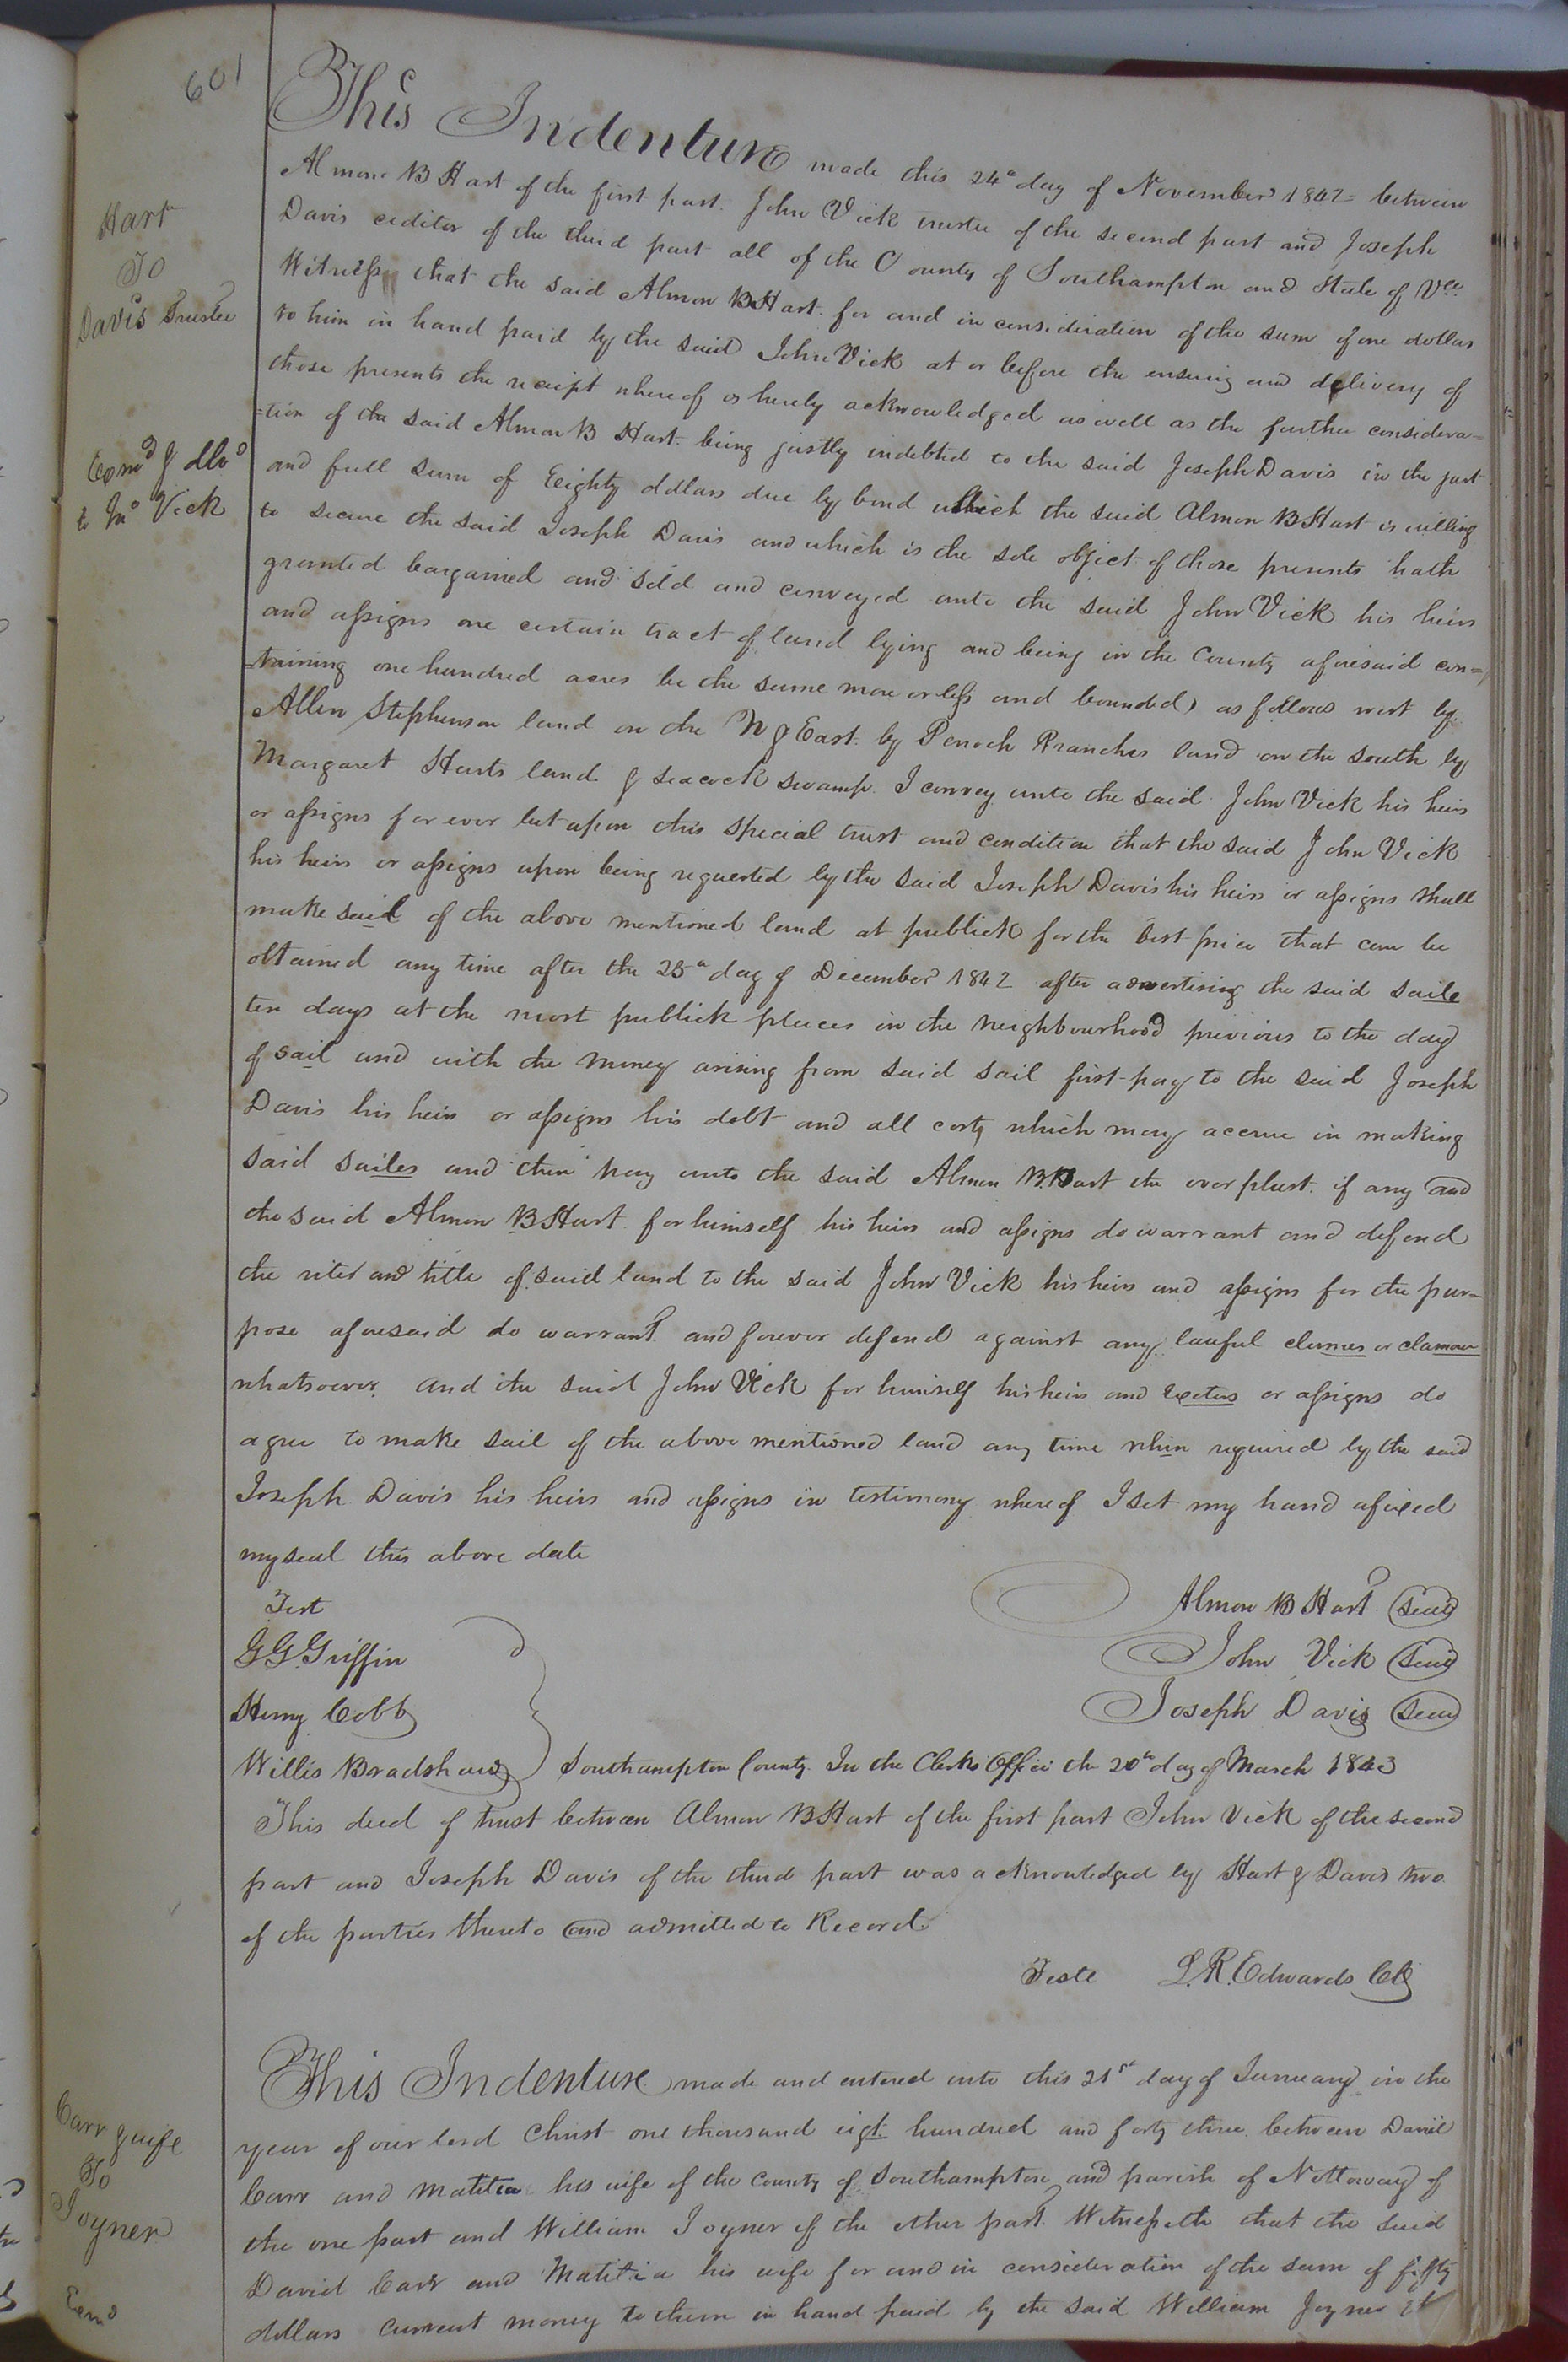 601
This Indenture made this 24th day of November 1842 between
Almon B Hart of the first part. John Vick trustee of the second part and Joseph
Davis cediter of the third part all of the County of Southampton and State of Va.
Witness that the said Almon B Hart for and in consideration of the sum of one dollar
to him in hand paid by the said John Vick at or before the ensuing and delivery of
those presents the receipt whereof is hereby acknowledged as well as the further considera=
=tion of the said Almon B Hart. being justly indebted to the said Joseph Davis in the just
and full sum of Eighty dollars due by bond which the said Almon B Hart is willing
to secure the said Joseph Davis and which is the sole object of those presents hath
granted bargained and sold and conveyed unto the said John Vick his heirs
and assigns one certain tract of land lying and being in the County aforesaid con=
=taining one hundred acres be the same more or less and bounded as follows west by
Allen Stephenson land on the N & East. by Penoch Branches land on the south by
Margaret Harts land & seacock swamp. I convey unto the said John Vick his heirs
or assigns for ever but upon this special trust and condition that the said John Vick
his heirs or assigns upon being requested by the said Joseph Davis his heirs or assigns shall
make sail of the above mentioned land at publick for the best price that can be
obtained any time after the 25th day of December 1842 after advertising the said saile
ten days at the most publick places in the neighbourhood previous to the day
of sail and with the money arising from said sail first pay to the said Joseph
Davis his heirs or assigns his debt and all costs which may accrue in making
said sailes and then pay unto the said Almon B Hart the over plust. if any and
the said Almon B Hart for himself his heirs and assigns do warrant and defend
the rites and title of said land to the said John Vick his heirs and assigns for the pur=
pose aforesaid do warrant and forever defend against any lauful clames or clamour
whatsoever. And the said John Vick for himself his heirs and Exctus or assigns do
agree to make sail of the above mentioned land any time whin required by the said
Joseph Davis his heirs and assigns in testimony whereof I set my hand afixed
my seal this above date
Almon B Hart (Seal)
John Vick (Seal)
Joseph Davis (Seal)
Test
G G Griffin
Henry Cobb
Willis Bradshaw
Southampton County. In the Clerks Office the 20th day of March 1843
This deed of trust between Almon B Hart of the first part John Vick of the second
part and Joseph Davis of the third part was acknowledged by Hart & Davis two
of the parties thereto and admitted to Record.
Teste L. R. Edwards Clk
This Indenture made and entered into this 21st day of January in the
year of our lord Christ one thousand eigt hundred and forty three between David
Carr and Matitia his wife of the County of Southampton and parish of Nottoway of
the one part and William Joyner of the other part Witnesseth that the said
David Carr and Matitia his wife for and in consideration of the sum of fifty
dollars current money to them in hand paid by the said William Joyner
Hart
To
Davis Trustee
Exmd & dld
to Jno Vick
Carr & wife
To
Joyner
Exmd